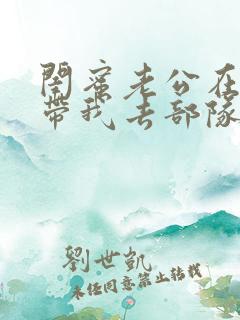 閨蜜老公在
帶我去部隊
劉世凱
未經同意禁止轉載